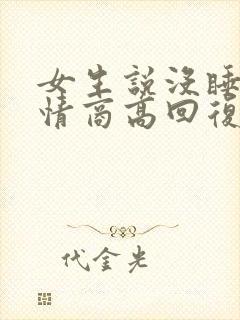 女生說沒睡
情商高回復
代金光